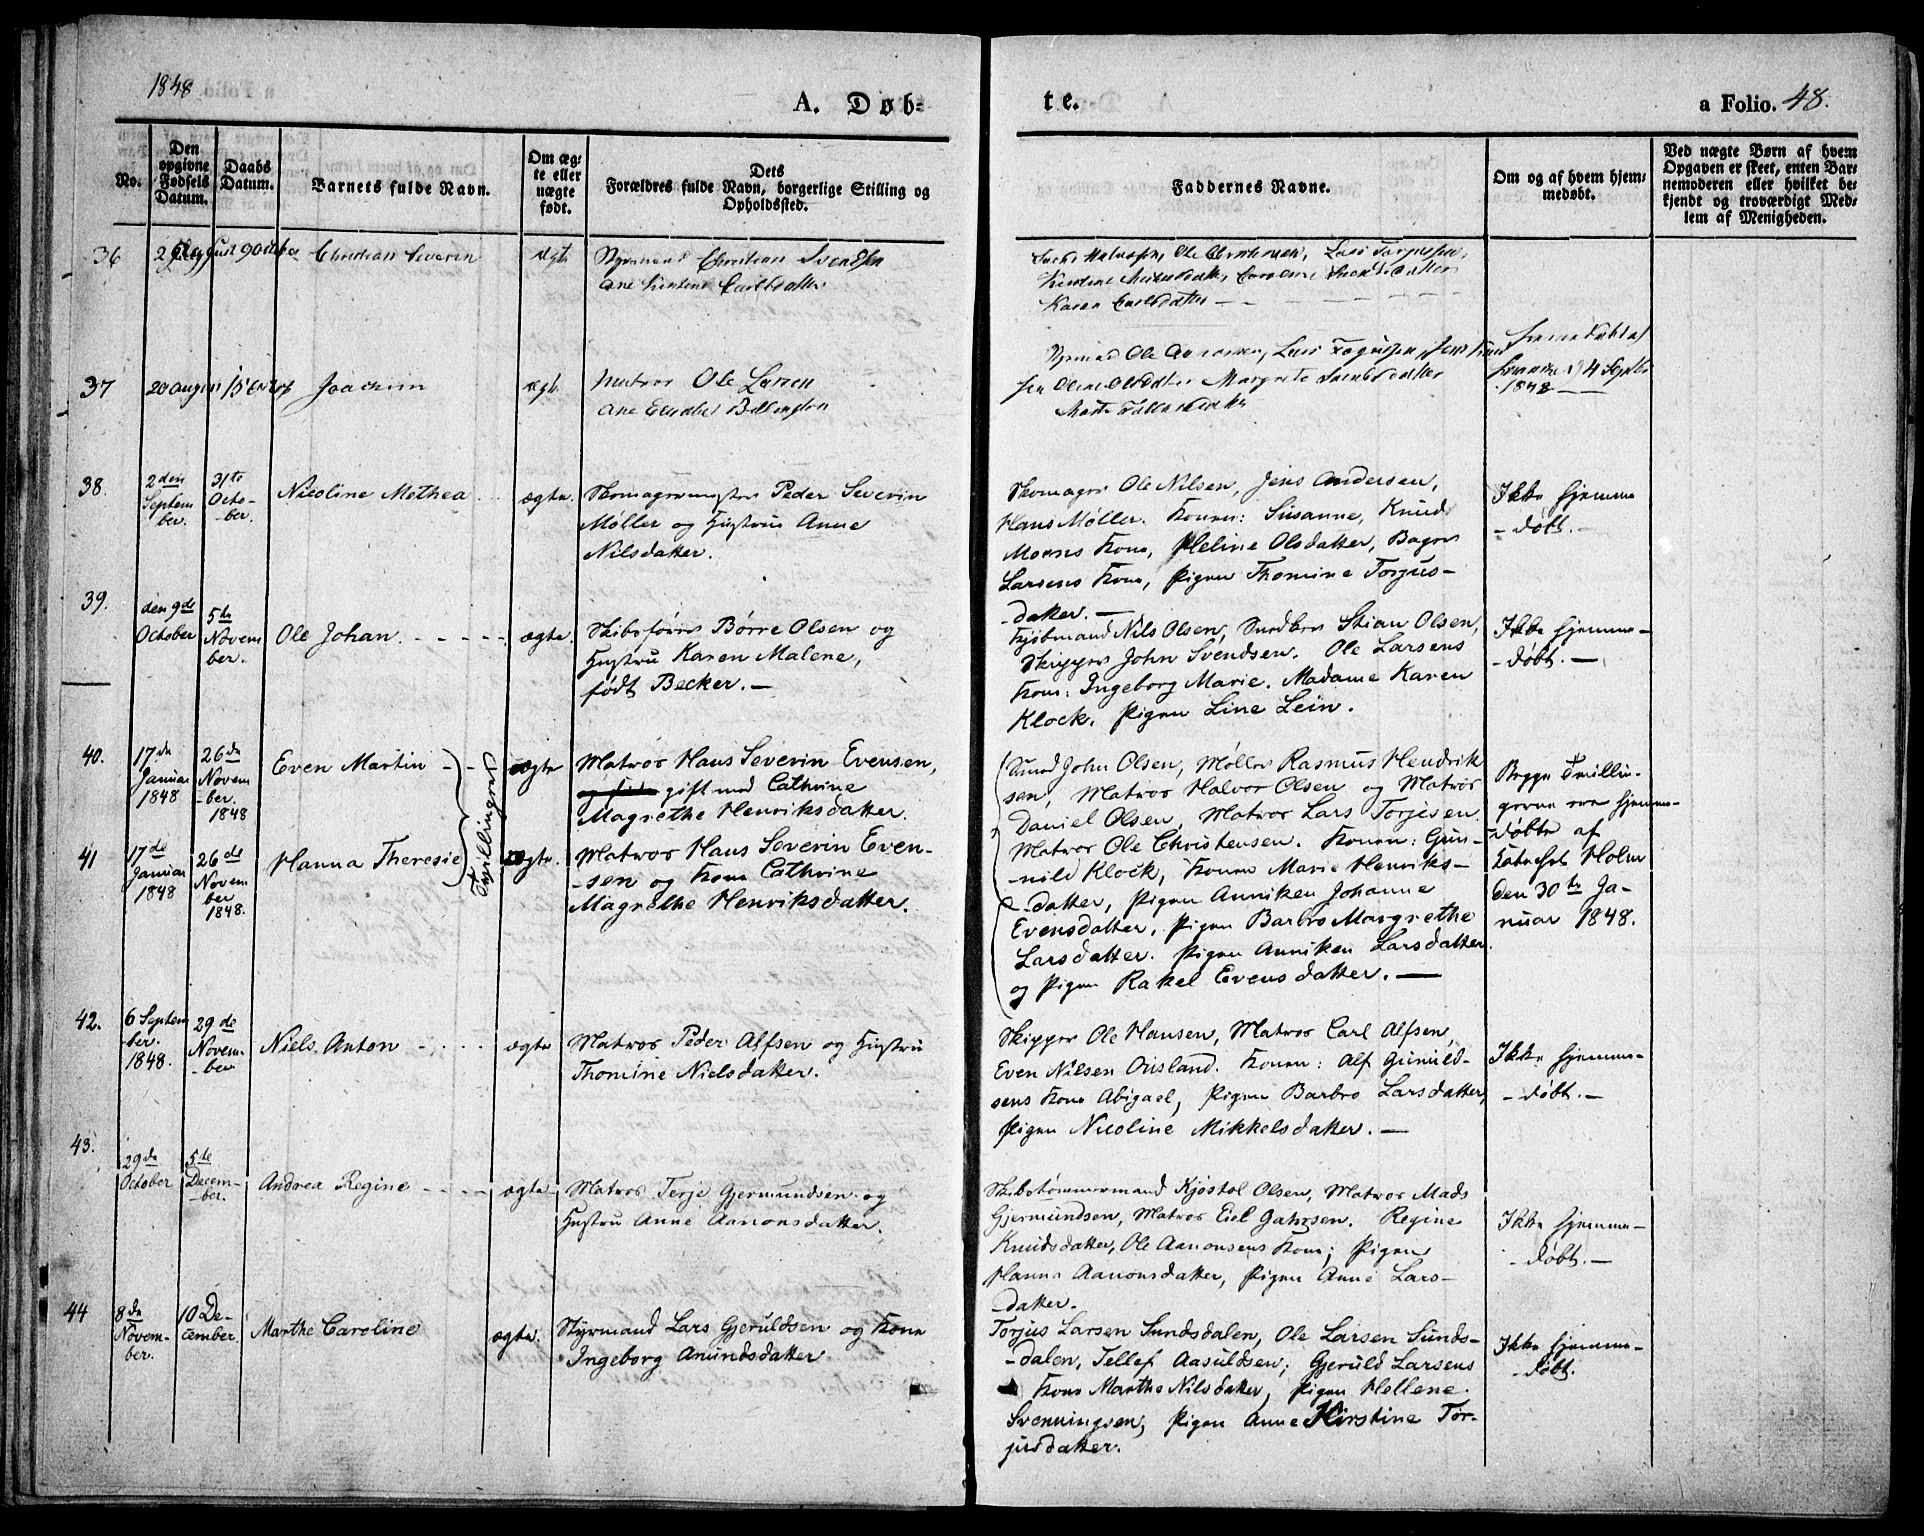 1848
A. Døb=
te.
a Folio. 48.
No.
Den opgivne Fødsels Datum.
Daabs Datum.
Barnets fulde Navn.
Om æg-
te eller
uægte
født.
Dets
Forældres fulde Navn, borgerlige Stilling og
Opholdssted.
Faddernes Navne.
Om og af hvem hjem-
medøbt.
Ved uægte Børn af hvem
Opgaven er skeet, enten Bar-
nemoderen eller hvilket be-
kjendt og troværdigt Med-
lem af Menigheden.
36
Christian Severin
ægte
Styrmand Christian Svendsen
Ane Kirstine Carlsdatter
Ole Christensen, Lars Torjussen,
Karen Carlsdatter
37
Joachim
ægte
Matros Ole Larsen
Ane Elisabet
Styrmand Ole
Margrete Svendsdatter
4 Septbr
1848
38.
2den
Septem
ber.
31te
Octo-
-ber.
Nicoline Methea
ægte.
Skomagermester Peder Severin
Møller og Hustrue Anne
Nilsdatter.
Skomager Ole Nilsen, Jens Andersen,
Hans Møller. Konen: Susanne, Knud
Moens Kone, Heline Olsdatter, Bager
Larsens Kone, Pigen Thomine Torjus-
-datter.
Ikke hjemme
-døbt.
39.
den 9de
October
5te
Novem
ber.
Ole Johan.
ægte.
Skibsfører Børre Olsen og
Hustru Karen Malene,
født Becker.
Kjøbmand Nils Olsen, Snedker Stian Olsen,
Skipper John Svendsen. Ole Larsens
Kone: Ingeborg Marie. Madame Karen
Klock. Pigen Line Lein.
Ikke hjemme-
-døbt.
40.
17de
Januar
1848
26de
Novem
-ber.
1848
Even Martin
Tvillinger
ægte
Matros Hans Severin Evensen,
gift med Cathrine
Magrethe Henriksdatter.
Smed John Olsen, Møller Rasmus Hendrik
sen, Matros Halvor Olsen og Matros
Daniel Olsen, Matros Lars Torjesen
Matros Ole Christensen. Konen: Gun-
-nild Klock, Konen Marie Henriks-
-datter, Pigen Anniken Johanne
Evensdatter, Pigen Barbro Margrethe
Larsdatter. Pigen Anniken Larsdatter
og Pigen Rakel Evensdatter.
Begge Tvillin-
gerne ere hjemme-
-døbte af
Kateket Holm
den 30te Ja-
nuar 1848.
41
17de
Januar
1848
26de
Novem
ber
1848.
Hanna Theresie
ægte.
Matros Hans Severin Even-
-sen og Kone Cathrine
Magrethe Henriksdatter.
42.
6 Septem
ber.
1848.
29de
Novem-
-ber
Niels Anton
ægte
Matros Peder Alfsen og Hustru
Thomine Nielsdatter.
Skipper Ole Hansen, Matros Carl Alfsen,
Even Nilsen Omsland. Konen: Alf Gunuld-
sens Kone Abigael, Pigen Barbro Larsdatter,
Pigen Nicoline Mikkelsdatter.
Ikke hjemme-
-døbt.
43.
29de
October
5te
Decem-
-ber.
Andrea Regine
ægte
Matros Terje Gjermundsen og
Hustru Anne Aanonsdatter.
Skibstømmermand Kjøstol Olsen, Matros Mads
Gjermundsen, Matros Eiel Gahrsen. Regine
Knudsdatter, Ole Aanonsens Kone; Pigen
Hanna Aanonsdatter, Pigen Anne Lars-
-datter.
Ikke hjemme-
-døbt.
44
8de
Novem-
ber.
10 De-
cember.
Marthe Caroline
ægte.
Styrmand Lars Gjeruldsen og Kone
Ingeborg Anundsdatter
Torjus Larsen Sundsdalen, Ole Larsen Sunds-
-dalen, Tellef Aasuldsen; Gjeruld Larsens
Kone Marthe Nilsdatter, Pigen Hellene
Svenningsen, Pigen Anne Kirstine Tor-
jusdatter.
Ikke hjemme-
-døbt.